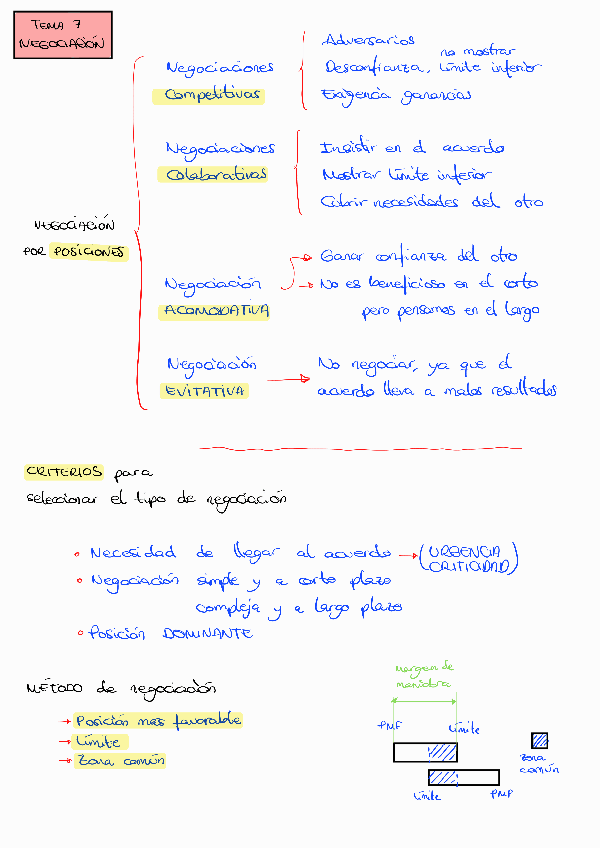 TEMA 7
NEGOCIACIÓN
NEGOCIACIÓN
POR POSICIONES
Negociaciones
Competitivas
Adversarios
Desconfianza, no mostrar límite inferior
Exigencia ganancias
Negociaciones
Colaborativas
Insistir en el acuerdo
Mostrar límite inferior
Cubrir necesidades del otro
Negociación
ACOMODATIVA
Ganar confianza del otro
No es beneficioso en el corto
pero pensamos en el largo
Negociación
EVITATIVA
No negociar, ya que el
acuerdo lleva a malos resultados
CRITERIOS para
seleccionar el tipo de negociación
• Necesidad de llegar al acuerdo → (URGENCIA
CRITICIDAD)
• Negociación simple y a corto plazo
compleja y a largo plazo
• Posición DOMINANTE
MÉTODO de negociación
→ Posición mas favorable
→ Límite
→ Zona común
margen de
maniobra
PMF
Límite
Límite
PMF
Zona
común